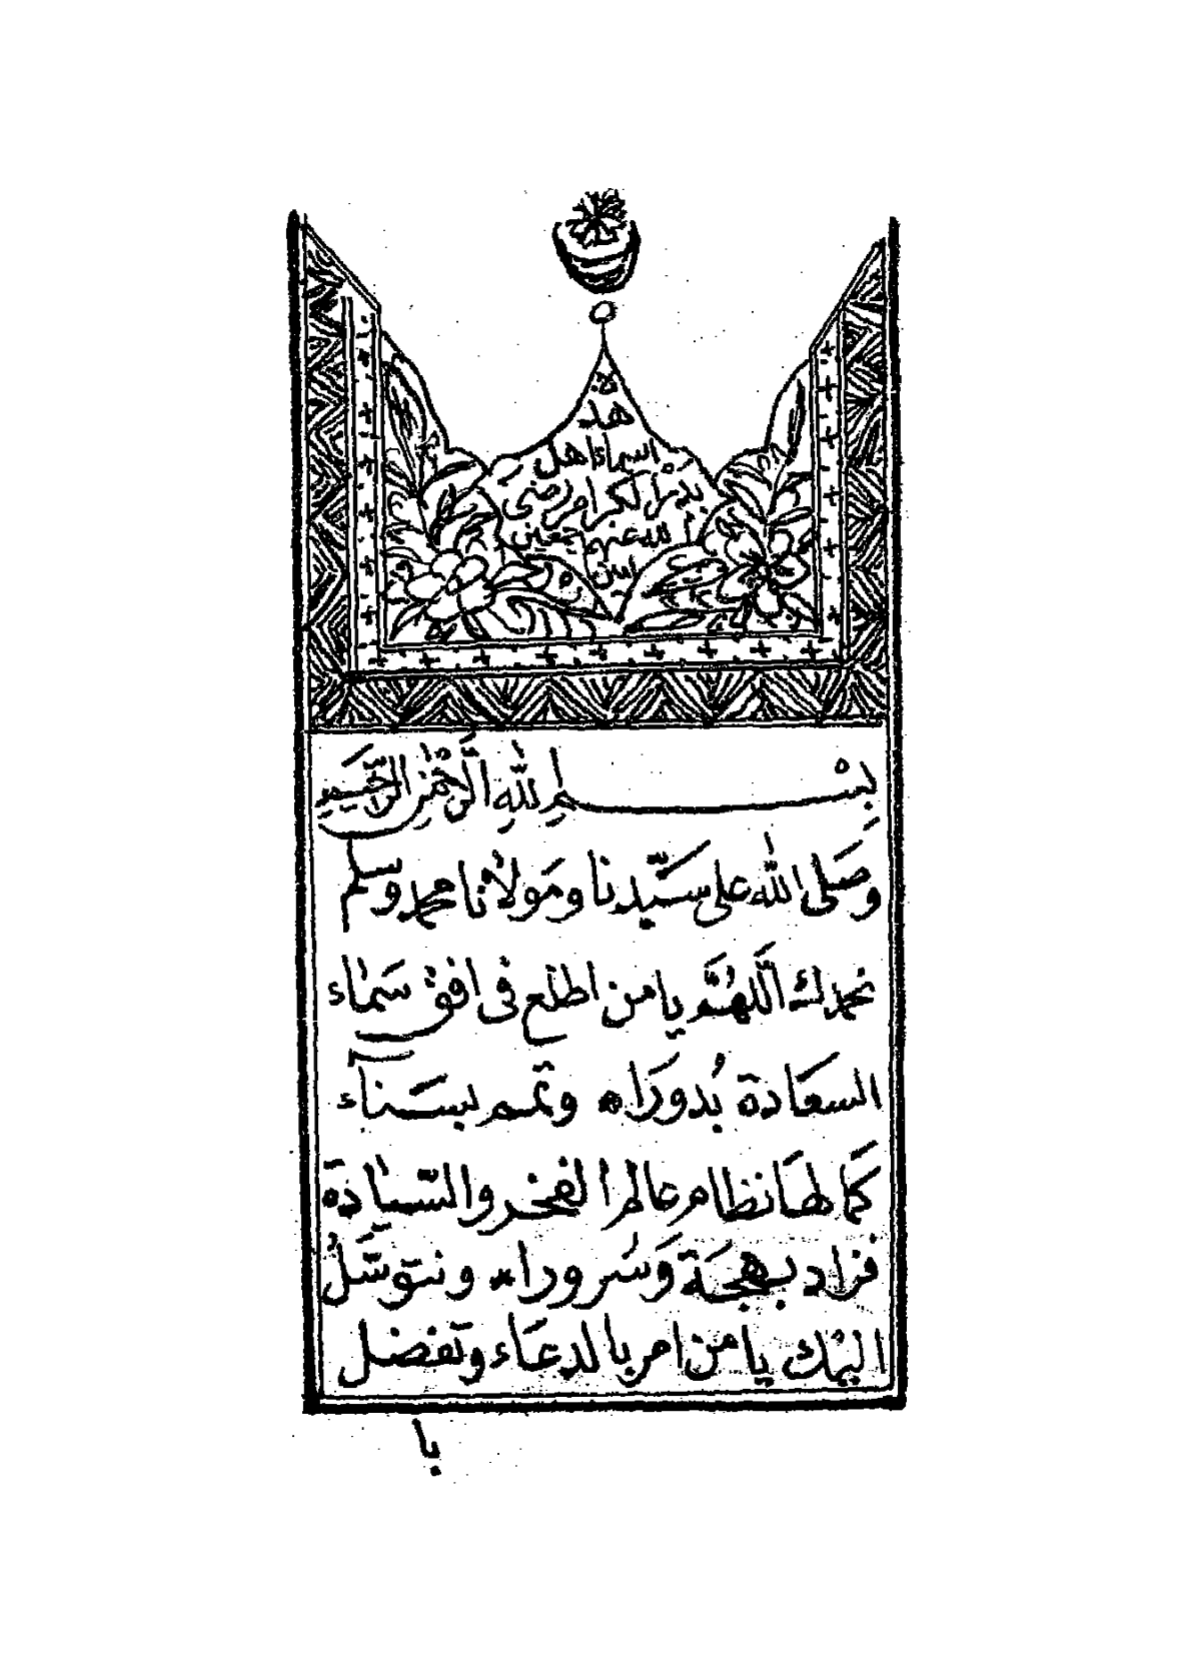 هذه
اسماء اهل
بدر الكرام رضى
الله عنهم اجمعين
امين
بِسْمِ اللهِ الرَّحْمٰنِ الرَّحِيمِ
وَصَلى الله على سَيّدنا ومَولانا محمد وسلم
نحمدك اللَّهُمَّ يا من اطلع فى افق سَمَاء
السعَادة بُدورَا * وتمم بسَنآء
كمَالهَا نظام عالم الفخر والسّيَادَة
فزاد بهجَة وَسُرورا * ونتوسَّلُ
اليك يا من امر بالدعَاء وتفضل
با